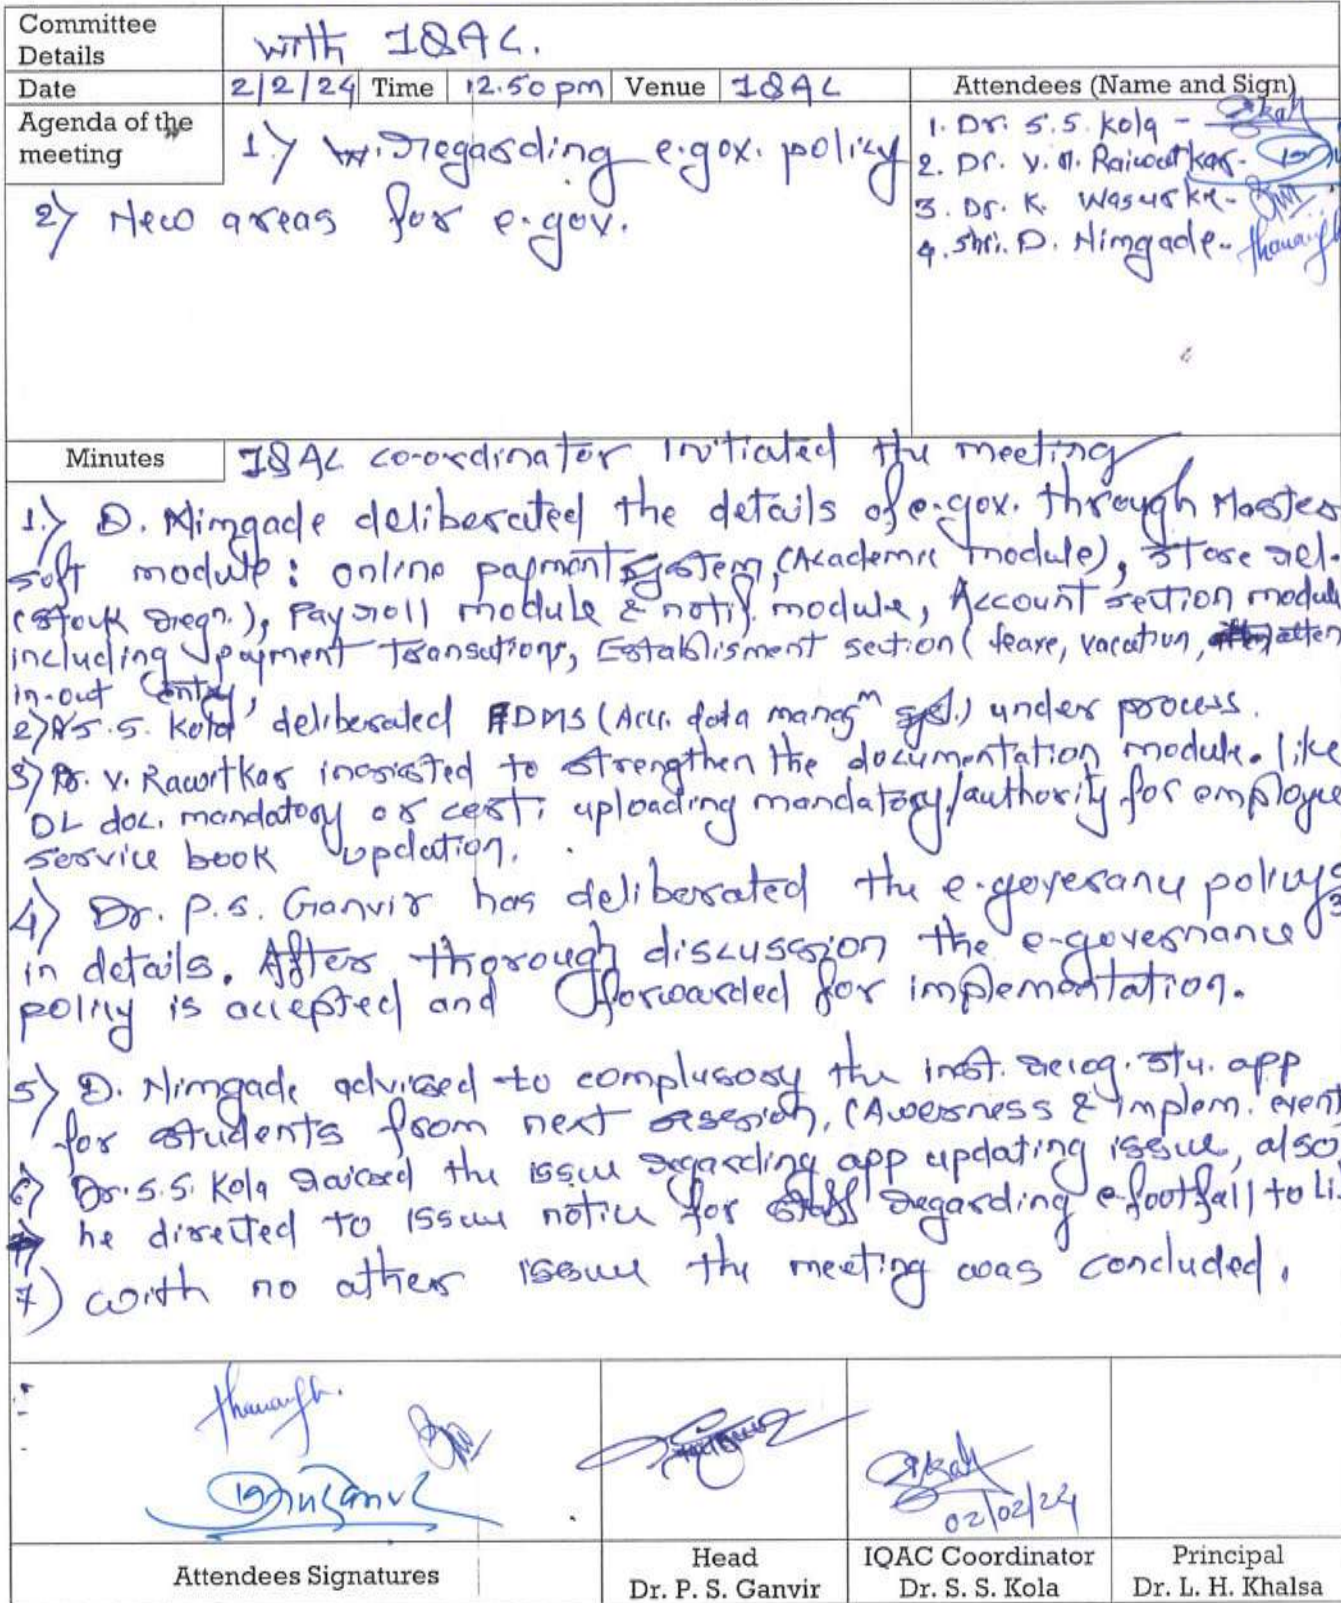 Committee Details with IQAC.
Date 2/2/24 Time 12.50 pm Venue IQAC Attendees (Name and Sign)
Agenda of the meeting 1.) regarding e.gov. policy
2) New areas for e-gov.
1. Dr. S.S. Kola -
2. Dr. V. M. Raiwatkar-
3. Dr. K. Wasurke-
4. Shri. D. Nimgade-
Minutes IQAC co-ordinator initiated the meeting
1.) D. Nimgade deliberated the details of e-gov. through Master
soft module: online payment system, (Academic module), store rel.
(stock regn.), Payroll module & notif. module, Account section modul
including payment transations, Establisment section (leave, vacation, atten
in-out entry,
2) S.S. Kola deliberated ADMS (Acr. data manag^m sys.) under process.
3) Dr. V. Rawtkar insisted to strengthen the documentation module. like
DL doc. mandatory or cert. uploading mandatory/authority for employee
service book updation.
4) Dr. P.S. Ganvir has deliberated the e-goverance policy
in details. After thorough discussion the e-governance
policy is accepted and forwarded for implementation.
5) D. Nimgade advised to complusory the inst. recog. stu. app
for students from next session, (Awerness & implem. event
6) Dr. S.S. Kola raised the issue regarding app updating issue, also
he directed to issue notice for staff regarding e-footfall to Li.
7) with no other issue the meeting was concluded.
02/02/24
Attendees Signatures
Head
Dr. P. S. Ganvir
IQAC Coordinator
Dr. S. S. Kola
Principal
Dr. L. H. Khalsa